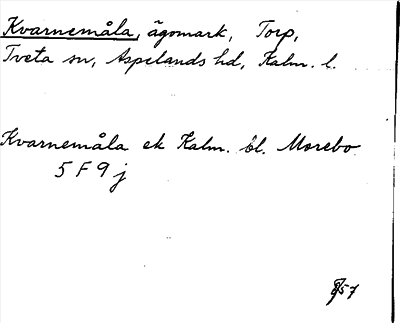 Kvarnemåla, ägomark, Torp,
Tveta sn, Aspelands hd, Kalm. l.
Kvarnemåla ek Kalm. bl. Morebo
5 F 9 j
57